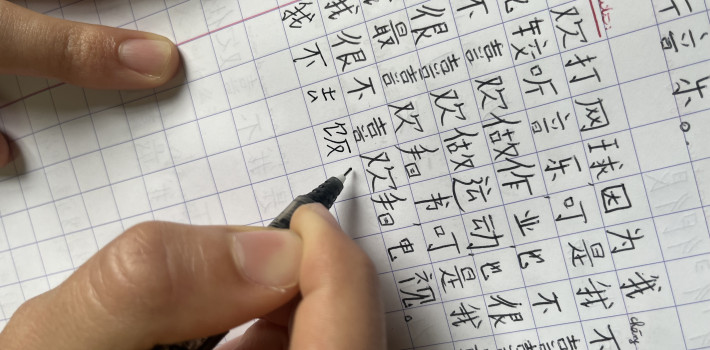 下音乐。
欢打网球,因为我 chàng
比较听音乐,可是我不
不喜欢做作业,也不喜
很喜欢做运动,也很喜
最喜欢看书,可是我
我很不喜欢看电视。
我不去饭